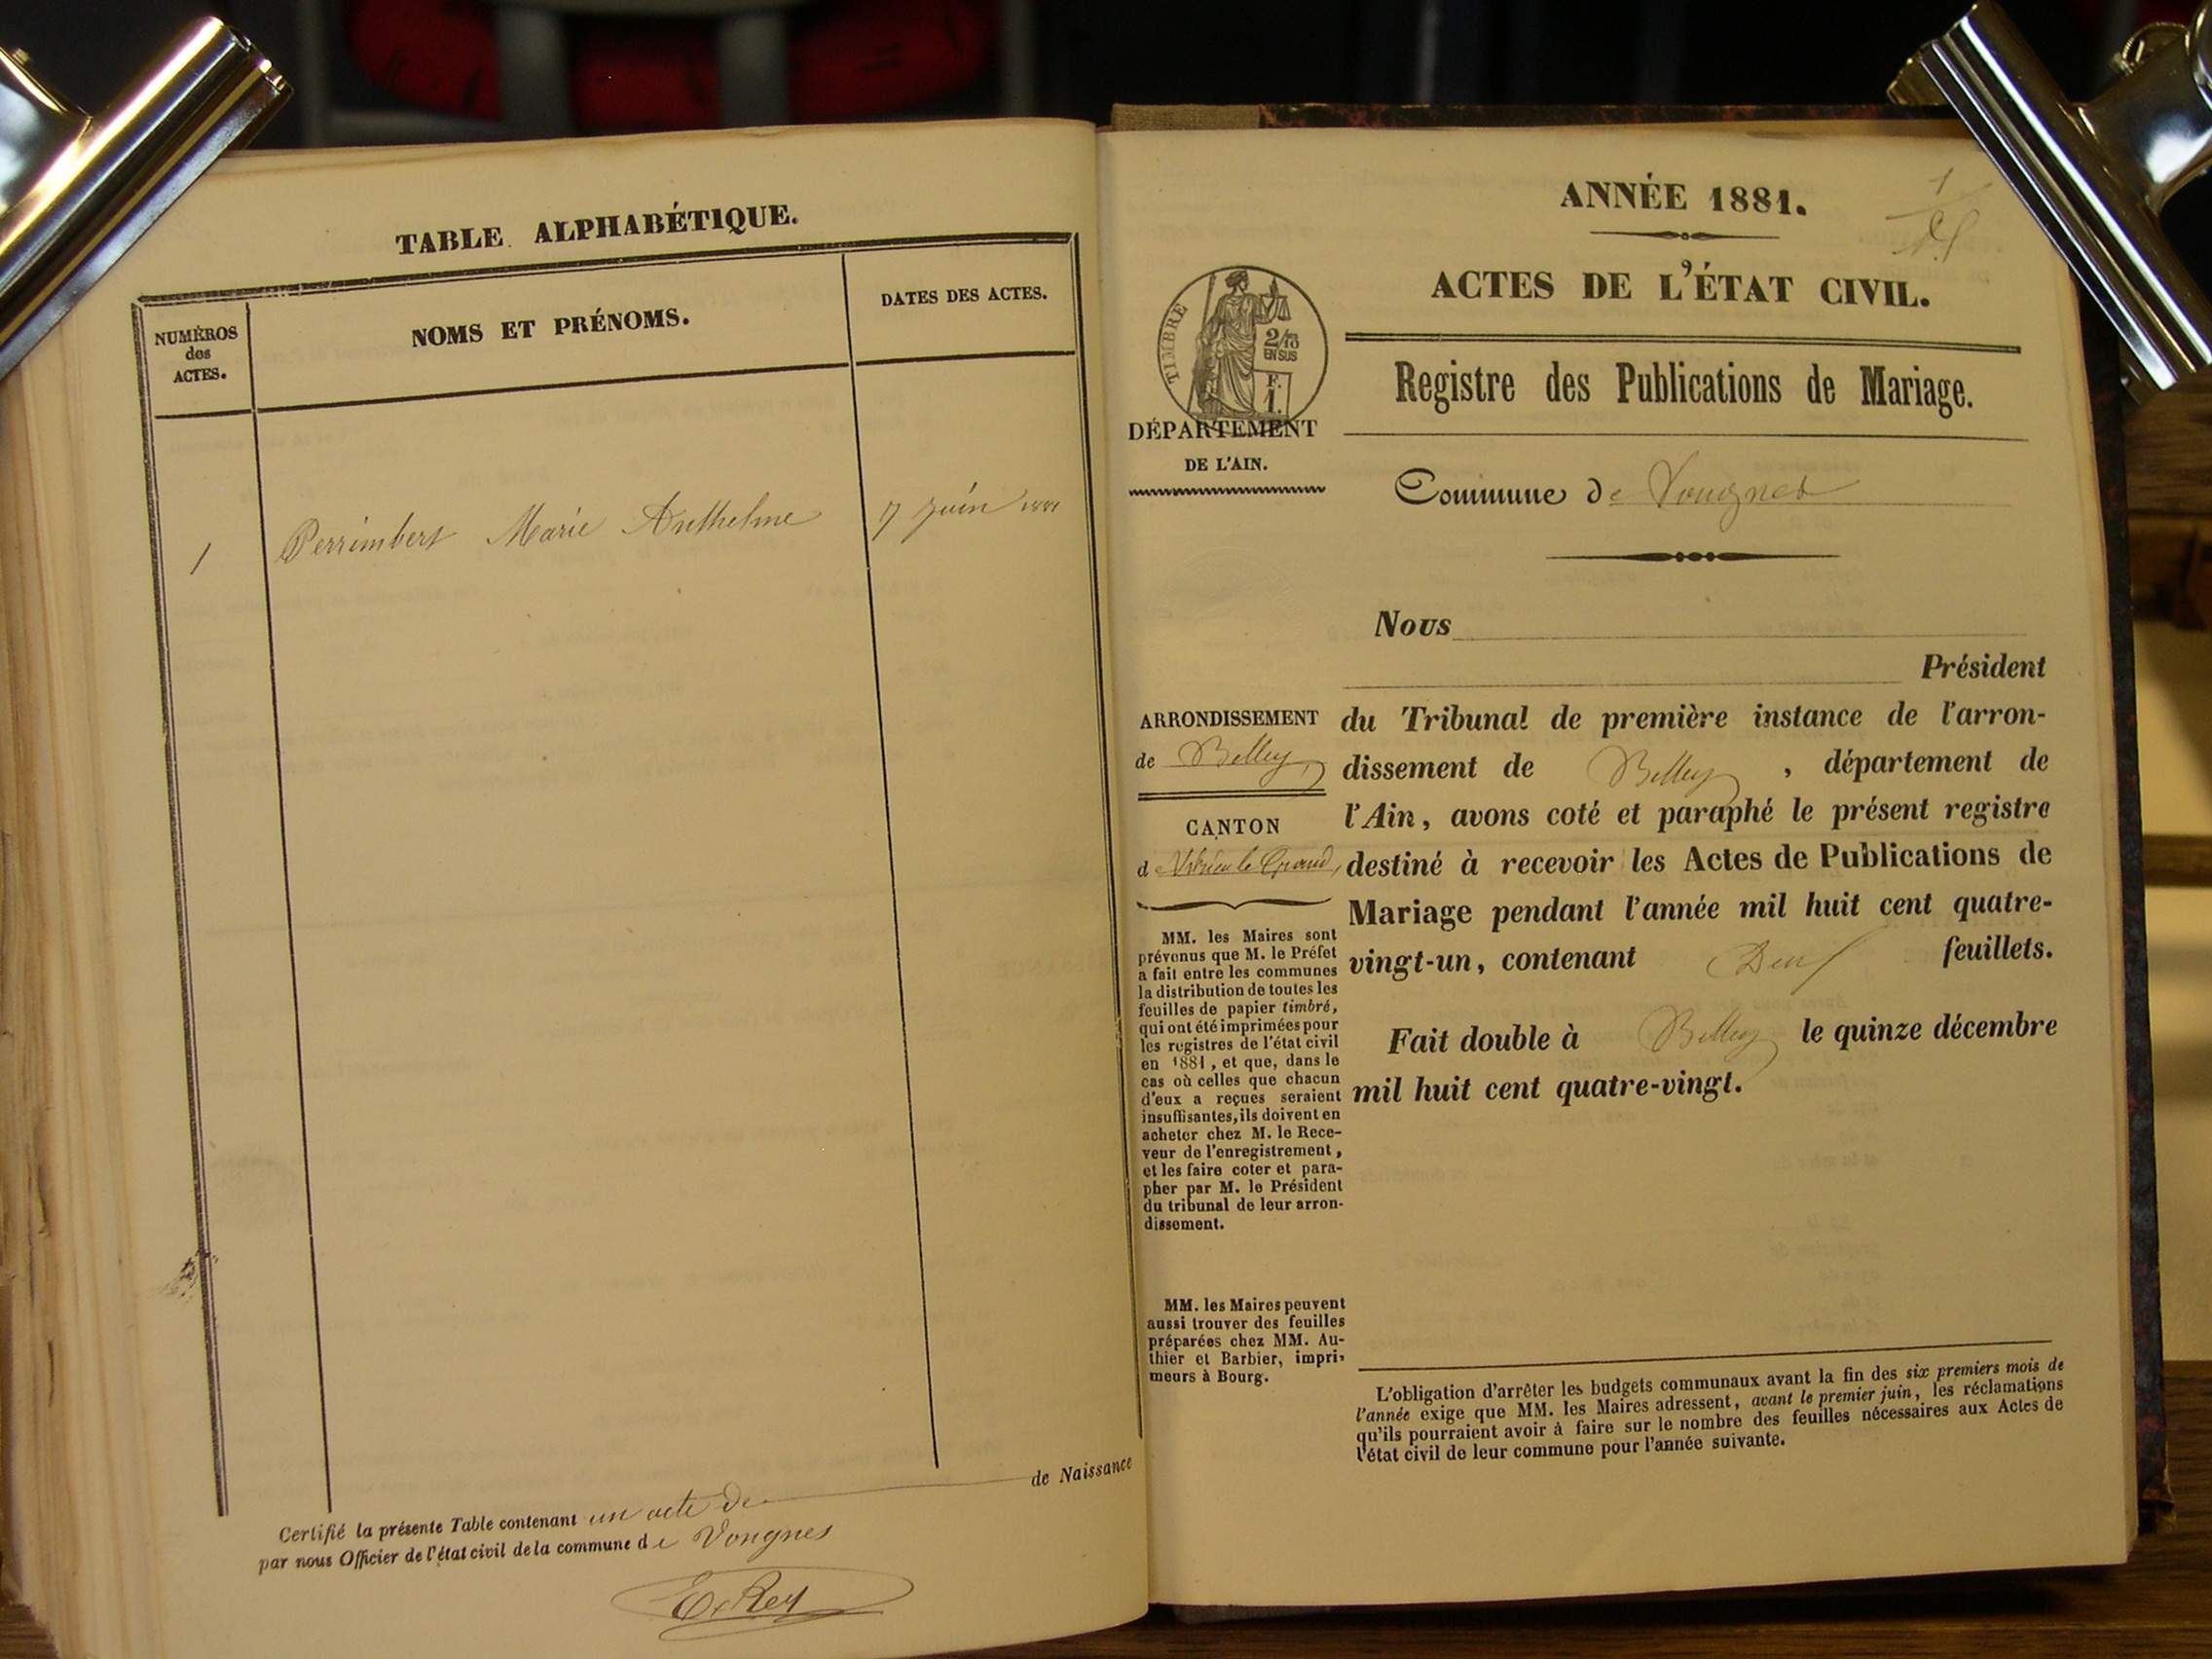 TABLE ALPHABÉTIQUE.
NUMÉROS
des
ACTES.
NOMS ET PRÉNOMS.
DATES DES ACTES.
1 Perrimbert Marie Anthelme 17 juin 1881
Certifié la présente Table contenant un acte de de Naissance
par nous Officier de l'état civil de la commune de Vongnes
E. Rey
ANNÉE 1881.
1
ACTES DE L'ÉTAT CIVIL.
TIMBRE
2/10
EN SUS
F.
1.
Registre des Publications de Mariage.
DÉPARTEMENT
DE L'AIN.
Commune de Vongnes
Nous
Président
ARRONDISSEMENT
de Belley
CANTON
d Virieu le Grand
MM. les Maires sont
prévenus que M. le Préfet
a fait entre les communes
la distribution de toutes les
feuilles de papier timbré,
qui ont été imprimées pour
les registres de l'état civil
en 1881, et que, dans le
cas où celles que chacun
d'eux a reçues seraient
insuffisantes, ils doivent en
acheter chez M. le Rece-
veur de l'enregistrement,
et les faire coter et para-
pher par M. le Président
du tribunal de leur arron-
dissement.
MM. les Maires peuvent
aussi trouver des feuilles
préparées chez MM. Au-
thier et Barbier, impri-
meurs à Bourg.
du Tribunal de première instance de l'arron-
dissement de Belley, département de
l'Ain, avons coté et paraphé le présent registre
destiné à recevoir les Actes de Publications de
Mariage pendant l'année mil huit cent quatre-
vingt-un, contenant Deux feuillets.
Fait double à Belley le quinze décembre
mil huit cent quatre-vingt.
L'obligation d'arrêter les budgets communaux avant la fin des six premiers mois de
l'année exige que MM. les Maires adressent, avant le premier juin, les réclamations
qu'ils pourraient avoir à faire sur le nombre des feuilles nécessaires aux Actes de
l'état civil de leur commune pour l'année suivante.